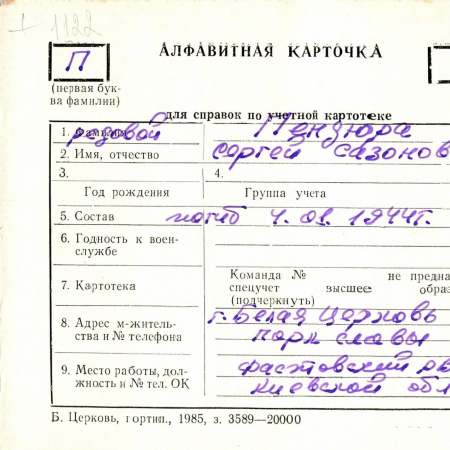 1122
П
АЛФАВИТНАЯ КАРТОЧКА
(первая бук-
ва фамилии)
для справок по учетной картотеке
1. Фамилия рядовой Пендюра
2. Имя, отчество Сергей Сазонов
3. 4.
Год рождения Группа учета
5. Состав погиб 4.01.1944г.
6. Годность к воен-
службе
Команда № не предна
7. Картотека спецучет высшее образ
(подчеркнуть)
г. Белая Церковь
8. Адрес м-житель-
ства и № телефона парк славы
9. Место работы, дол-
жность и № тел. ОК
Киевской обл
Б. Церковь, гортип., 1985, з. 3589—20000